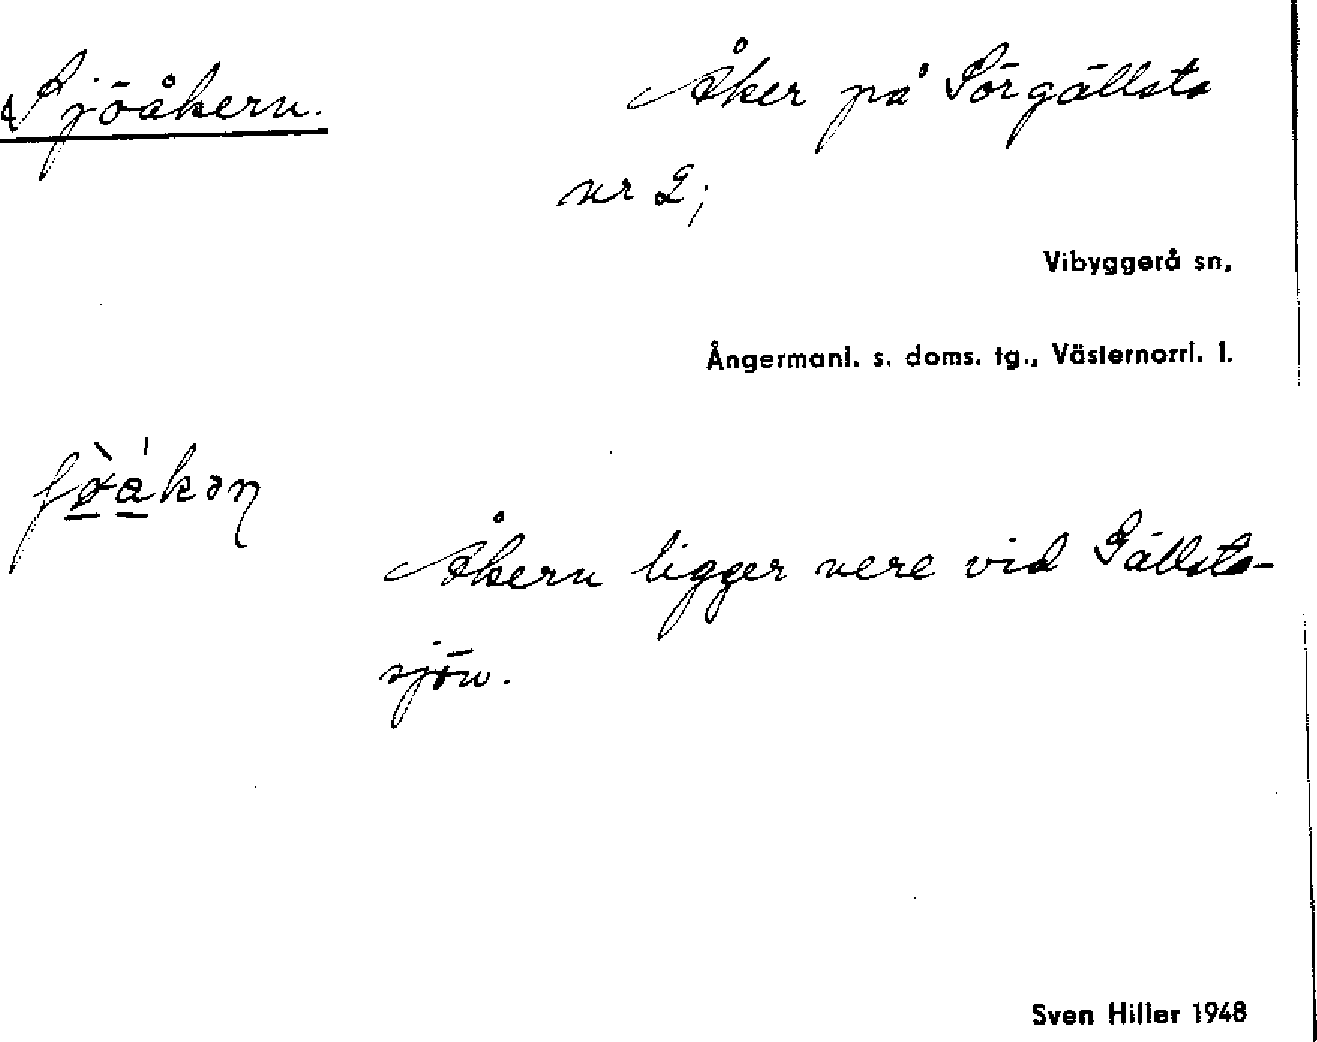 Sjöåkern.
Åker på Sörgällsta
nr 2;
Vibyggerå sn,
Ångermanl. s. doms. tg., Västernorrl. l.
Åkern ligger nere vid Gällsta-
sjön.
Sven Hiller 1948